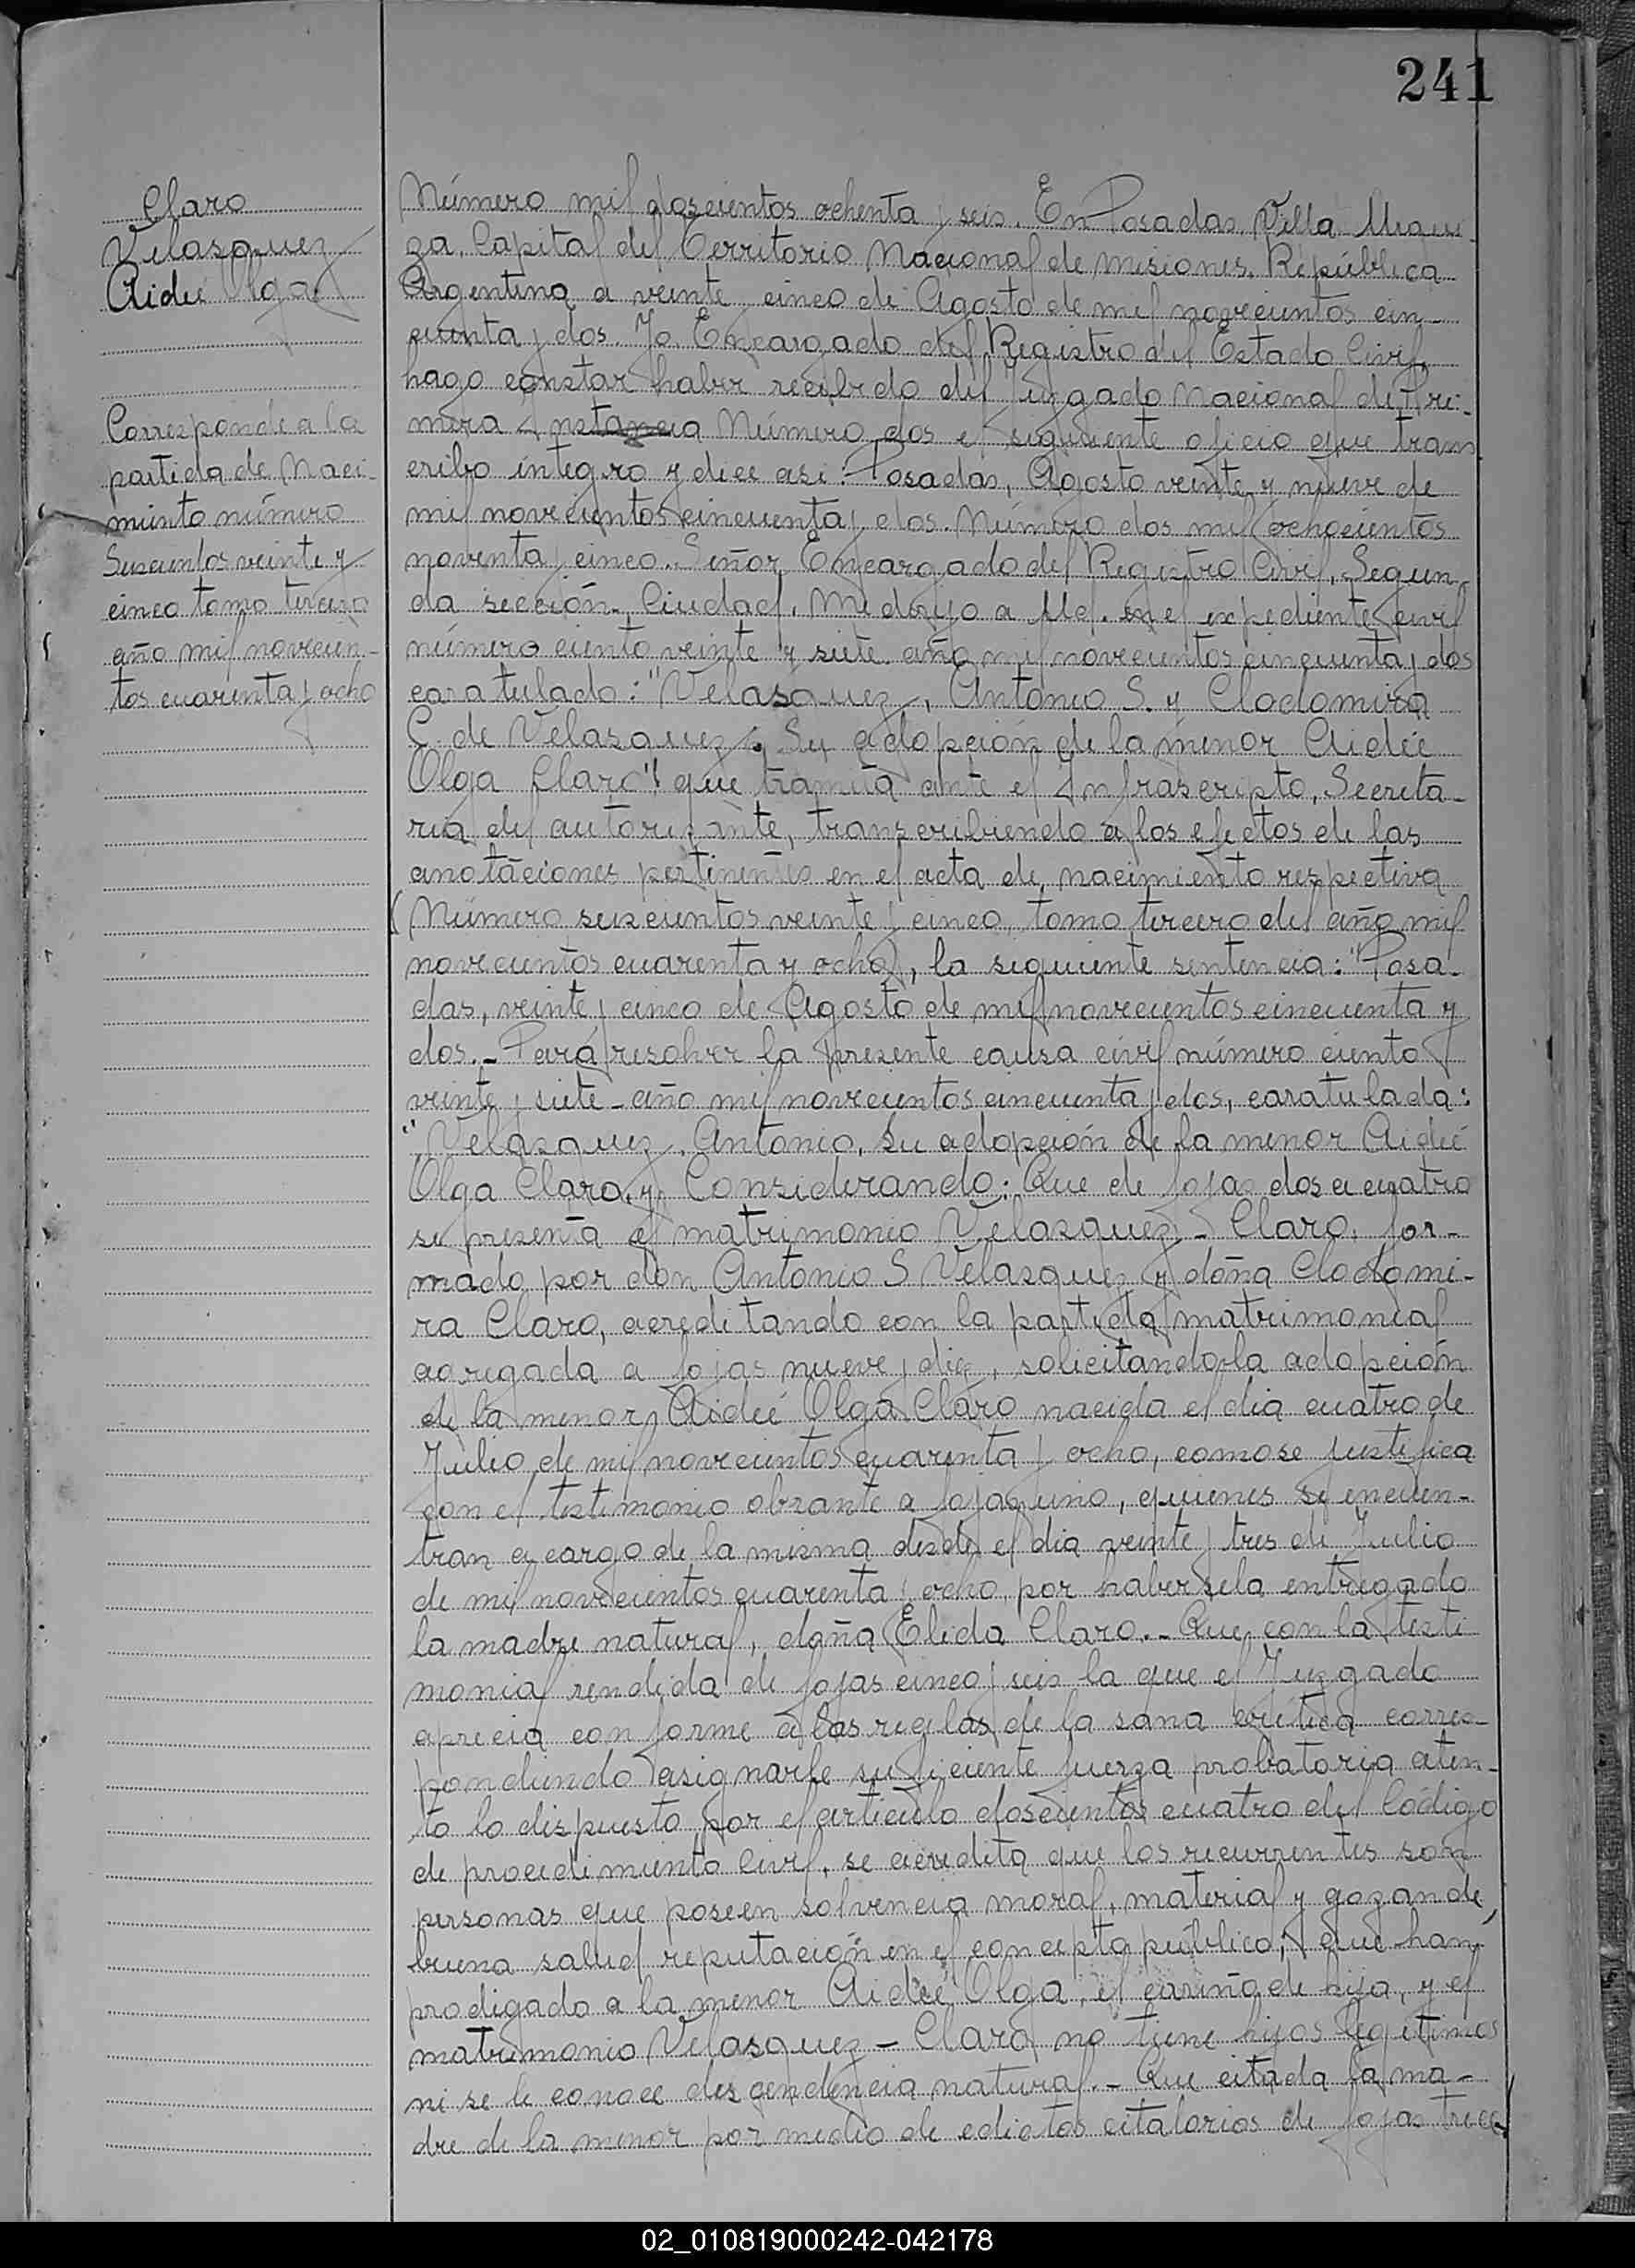 241
Claro
Velasquez
Aideé Olga
Corresponde a la
partida de Naci-
miento número
Seiscientos veinte y
cinco tomo tercero
año mil novecien-
tos cuarenta y ocho
Número mil doscientos ochenta y seis. En Posadas, Villa Urqui-
za, Capital del Territorio Nacional de Misiones, República
Argentina a veinte y cinco de Agosto de mil novecientos cin-
cuenta y dos. Yo Encargado del Registro del Estado Civil,
hago constar haber recibido del Juzgado Nacional de Pri-
mera Instancia Número dos el siguiente oficio que trans
cribo íntegro y dice asi: Posadas, Agosto veinte y nueve de
mil novecientos cincuenta y dos. Número dos mil ochocientos
noventa y cinco. Señor Encargado del Registro Civil, Segun-
da sección. Ciudad. Me dirijo a Ud. en el expediente civil
número ciento veinte y siete año mil novecientos cincuenta y dos
caratulado: "Velasquez, Antonio S. y Clodomira
C. de Velasquez, Su adopción de la menor Aideé
Olga Claro" que tramita ante el Infrascripto, Secreta-
ría del autorizante, transcribiendo a los efectos de las
anotaciones pertinentes en el acta de nacimiento respectiva
(Número seiscientos veinte y cinco, tomo tercero del año mil
novecientos cuarenta y ocho), la siguiente sentencia: "Posa-
das, veinte y cinco de Agosto de mil novecientos cincuenta y
dos.- Para resolver la presente causa civil número ciento
veinte y siete - año mil novecientos cincuenta y dos, caratulada:
"Velasquez, Antonio, su adopción de la menor Aideé
Olga Claro, y Considerando: Que de fojas dos a cuatro
se presenta el matrimonio Velasquez - Claro, for-
mado por don Antonio S Velasquez y doña Clodomi-
ra Claro, acreditando con la partida matrimonial
agregada a fojas nueve y diez, solicitando la adopción
de la menor Aideé Olga Claro nacida el dia cuatro de
Julio de mil novecientos cuarenta y ocho, como se justifica
con el testimonio obrante a fojas uno, quienes se encuen-
tran a cargo de la misma desde el dia veinte y tres de Julio
de mil novecientos cuarenta y ocho, por habersela entregado
la madre natural, doña Elida Claro.- Que con la testi
monial rendida de fojas cinco y seis la que el Juzgado
aprecia conforme a las reglas de la sana crítica corres-
pondiendo asignarle suficiente fuerza probatoria aten-
to lo dispuesto por el artículo doscientos cuatro del Código
de procedimiento Civil, se acredita que los recurrentes son
personas que poseen solvencia moral, material y gozan de
buena salud reputación en el concepto público, que han
prodigado a la menor Aideé Olga, el cariño de hija, y el
matrimonio Velasquez - Claro no tiene hijos legítimos
ni se le conoce descendencia natural.- Que citada la ma-
dre de la menor por medio de edictos citatorios de fojas trece
02_010819000242-042178